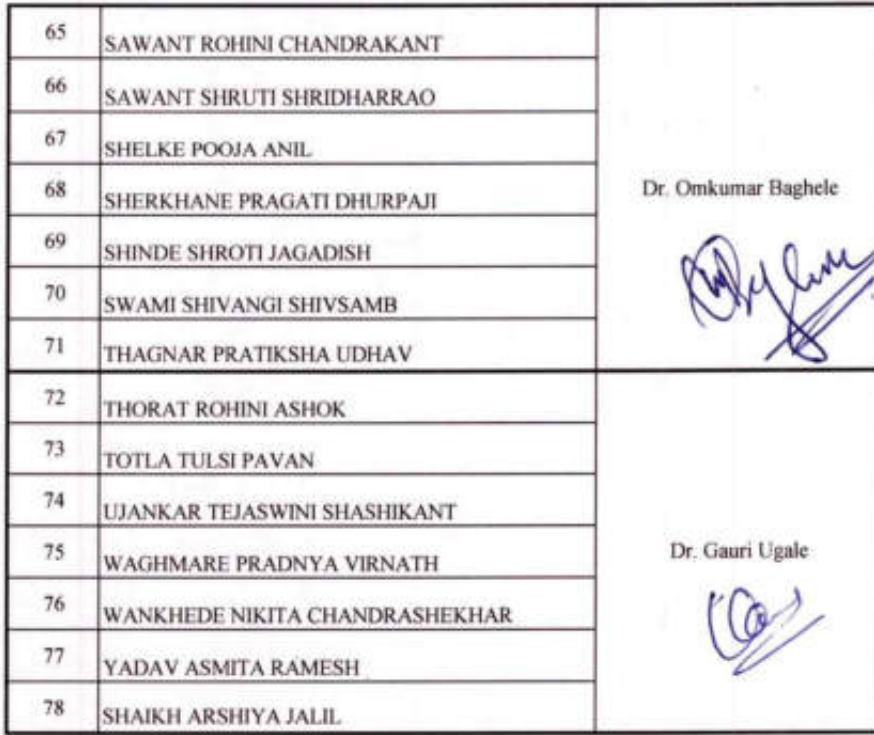 65 SAWANT ROHINI CHANDRAKANT
66 SAWANT SHRUTI SHRIDHARRAO
67 SHELKE POOJA ANIL
68 SHERKHANE PRAGATI DHURPAJI
69 SHINDE SHROTI JAGADISH
70 SWAMI SHIVANGI SHIVSAMB
71 THAGNAR PRATIKSHA UDHAV
Dr. Omkumar Baghele
72 THORAT ROHINI ASHOK
73 TOTLA TULSI PAVAN
74 UJANKAR TEJASWINI SHASHIKANT
75 WAGHMARE PRADNYA VIRNATH
76 WANKHEDE NIKITA CHANDRASHEKHAR
77 YADAV ASMITA RAMESH
78 SHAIKH ARSHIYA JALIL
Dr. Gauri Ugale